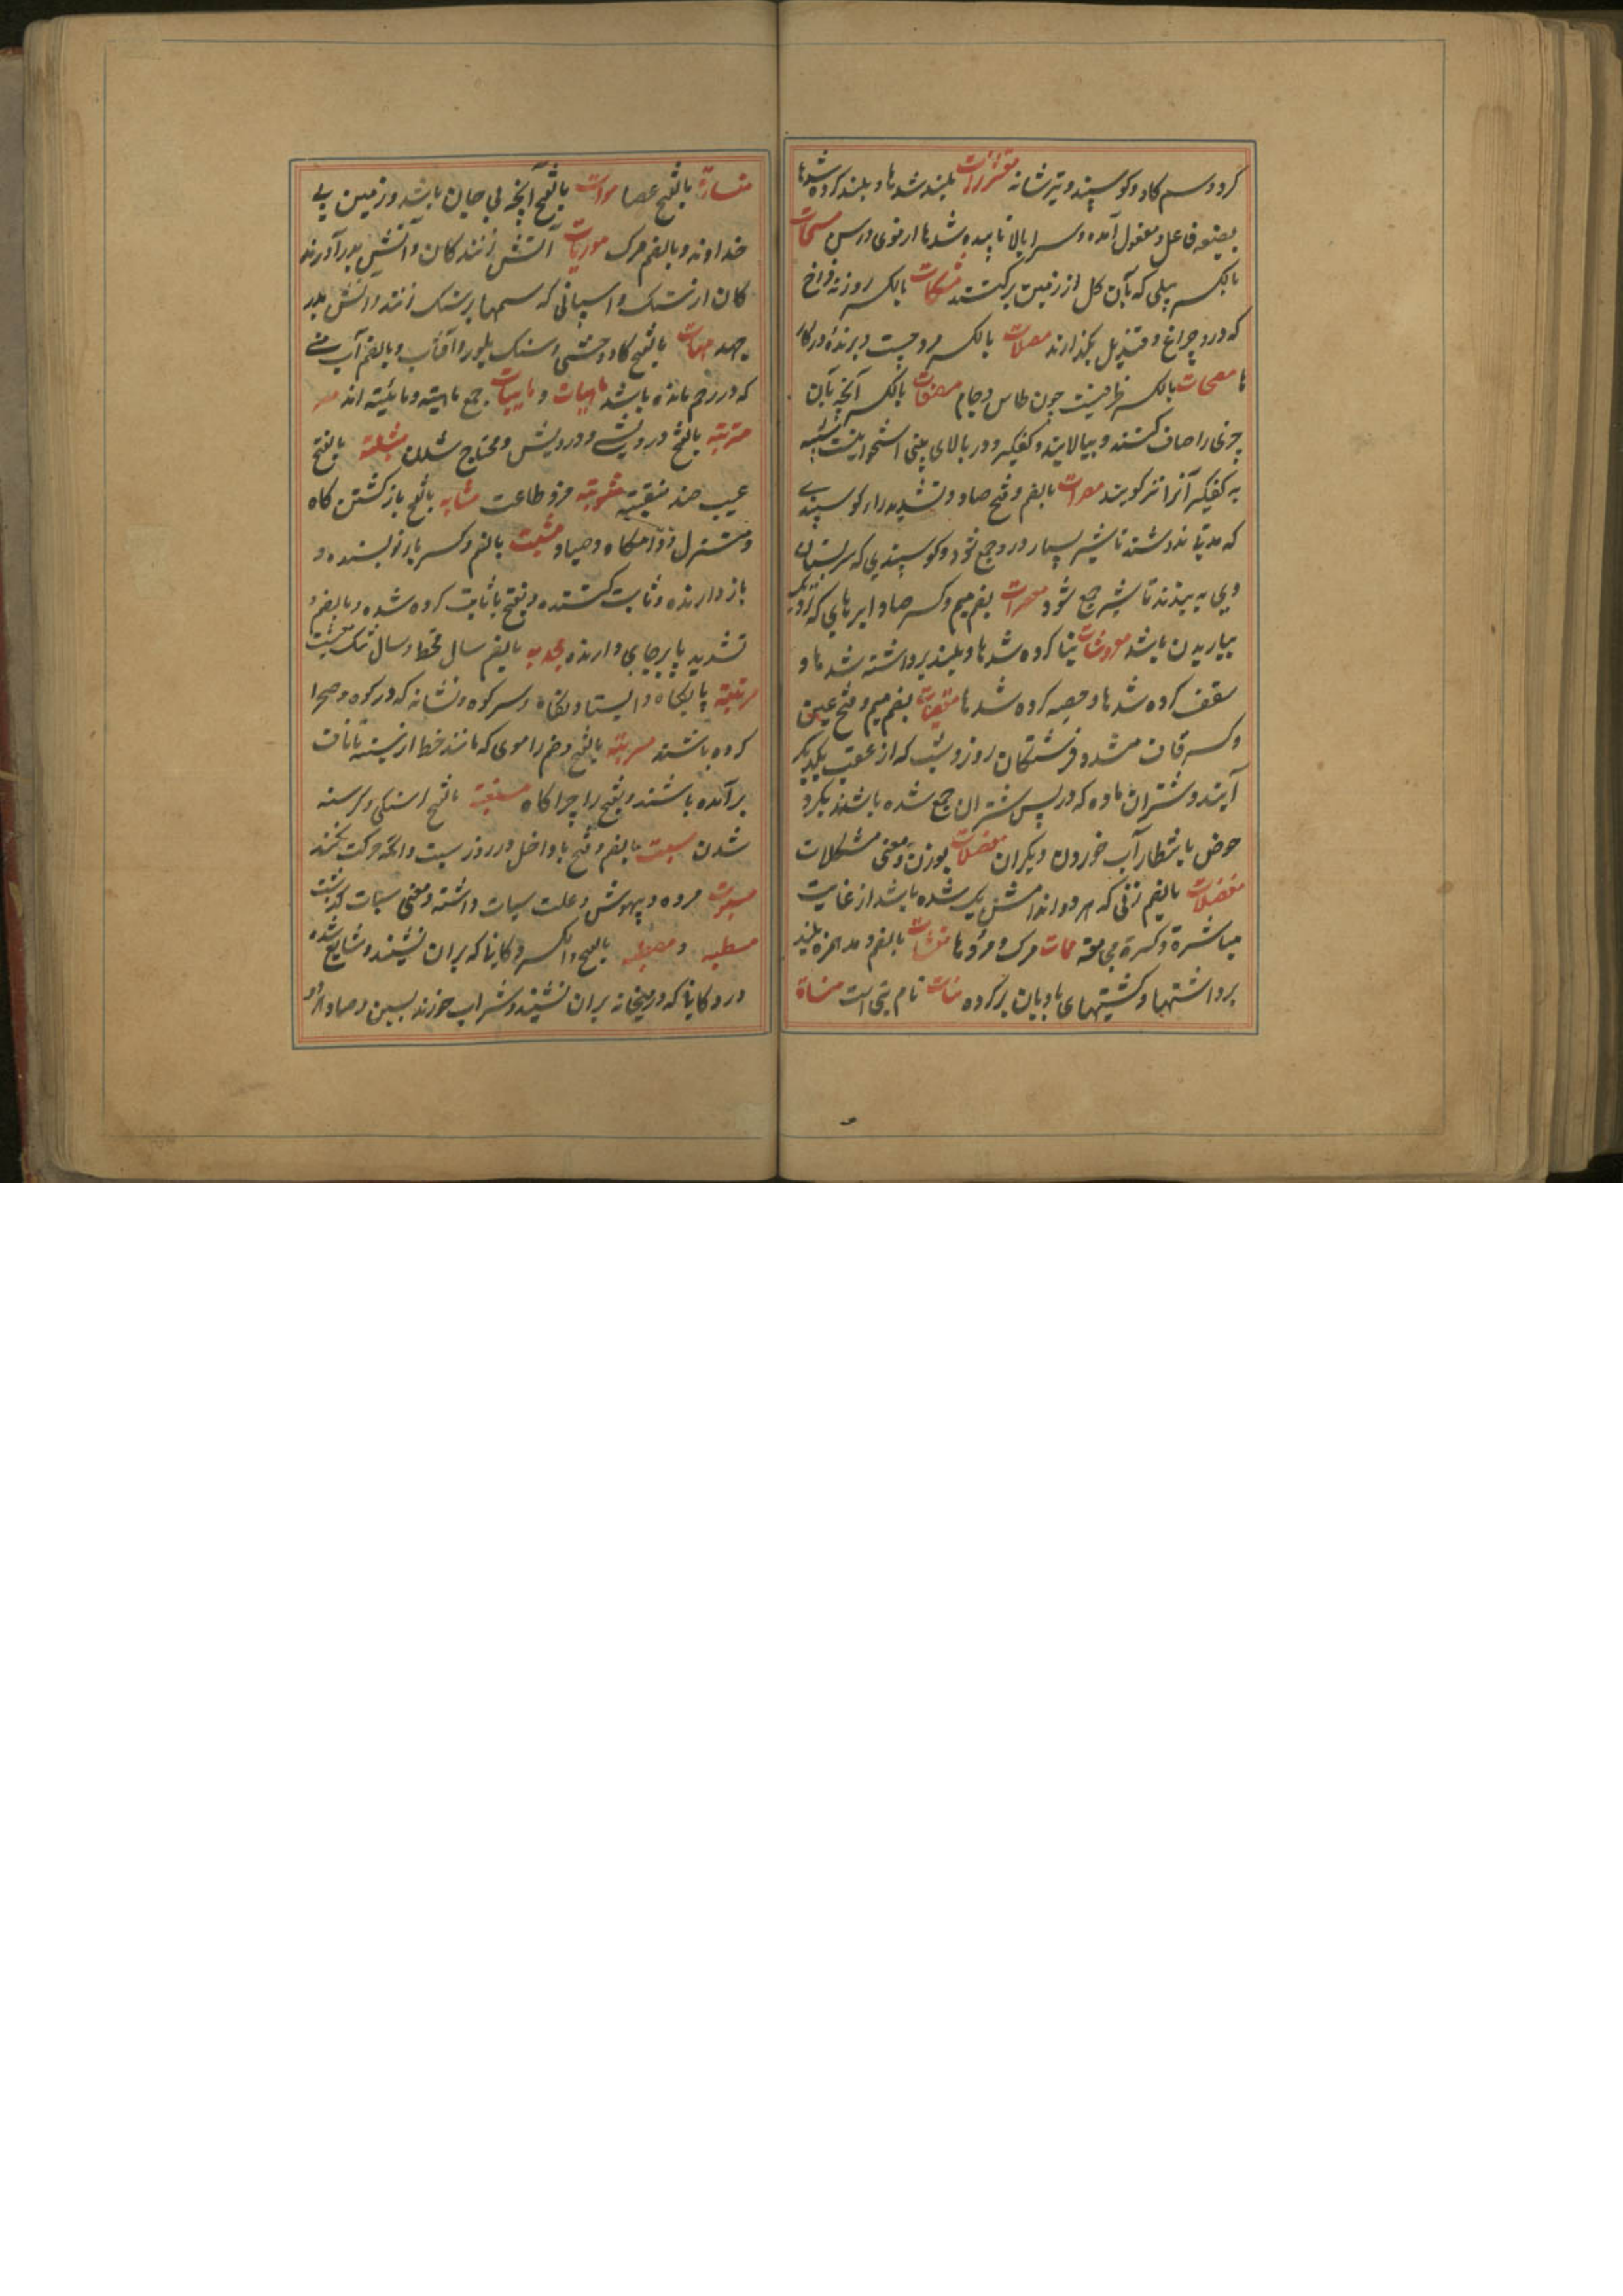 کرد و سم کاو و کوسپند و تیر شانه مقشرات بلند شدها و بلند کرده شدها
بصیغه فاعل و مفعول آمده و سرا بالا تابیده شدها از موی و رس مسحات
بالکسر بیلی که بآن کل از زمین برکنند مشکات بالکسر روزنه فراخ
که درو چراغ و قندیل بگذارند مصلات بالکسر مرد چست و برنده در کار
ها مصحات بالکسر ظرفیست چون طاس و جام مصفات بالکسر آنچه بآن
چیزی را صاف کنند و بپالایند و کفکیر و در بالای بینی استخوانیست شبیه
به کفکیر آنرا نیز کویند مصرات بالضم و فتح صاد و تشدید راء کوسپندی
که ندوشند تا شیر بسیار درو جمع شود و کوسپندی که سر پستان
وی به بندند تا شیر جمع شود معصرات بضم میم و کسر صاد ابرهای که نزدیک
بباریدن باشد معروشات بنا کرده شدها و بلند برداشته شدها و
سقف کرده شدها و حصه کرده شدها معقبات بضم میم و فتح عین
و کسر قاف مشدد فرشتکان روز و شب که از عقب یکدیکر
آیند و شتران ماده که در پس شتران جمع شده باشند بکرد
حوض بانتظار آب خوردن دیکران معضلات بوزن و معنی مشکلات
مفضلات بالضم زنی که هر دو اندامش یک شده باشد از غایت
مباشرة و کسرة مجامعة ممات مرک و مردها منشات بالضم و مد همزه بلند
برداشتها و کشتیهای بادبان بر کرده منات نام بتی است منساة
منساة بالفتح عصا موات بالفتح آنچه بی جان باشد و زمین بی
خداوند و بالضم مرک موریات آتش زنندکان و آتش بدر آورند
کان از سنک و اسپانی که سمها بر سنک زنند و آتش بدر
جهد مهات بالفتح کاو وحشی و سنک بلور و آفتاب و بالضم آب منی
که در رحم مانده باشد ماهیات و مائیات جمع ماهیته و مائیته اند
متربته بالفتح درویشی و درویش و محتاج شدن مثلبته بالفتح
عیب ضد منقبته مثوبته مزد طاعت مثابه بالفتح باز کشتن کاه
و منزل و دامکاه و صیاد مثبت بالضم و کسر با نویسنده و
باز دارنده و ثابت کننده و بفتح با ثابت کرده شده و بالضم و
تشدید با برجای دارنده مجدب بالضم سال قحط و سال تنک معیشت
مرتبته پایکاه و ایستادنکاه و سر کوه و نشانه که در کوه و صحرا
کرده باشند مسربته بالفتح و ضم را موی که مانند خط از سینه تا ناف
برآمده باشند و بفتح را چراکاه مسغبته بالفتح کرسنکی و کرسنه
شدن مسبت بالضم و فتح با داخل در روز سبت و آنکه حرکت نکند
مسبوت مرده و بیهوش و علت سبات داشته و معنی سبات کذشت
مسطبه و مصطبه بالفتح والکسر دکانها که بران نشینند و شایع شده
در دکانها که در میخانه بران نشینند و شراب خورند بسین و صاد هر دو